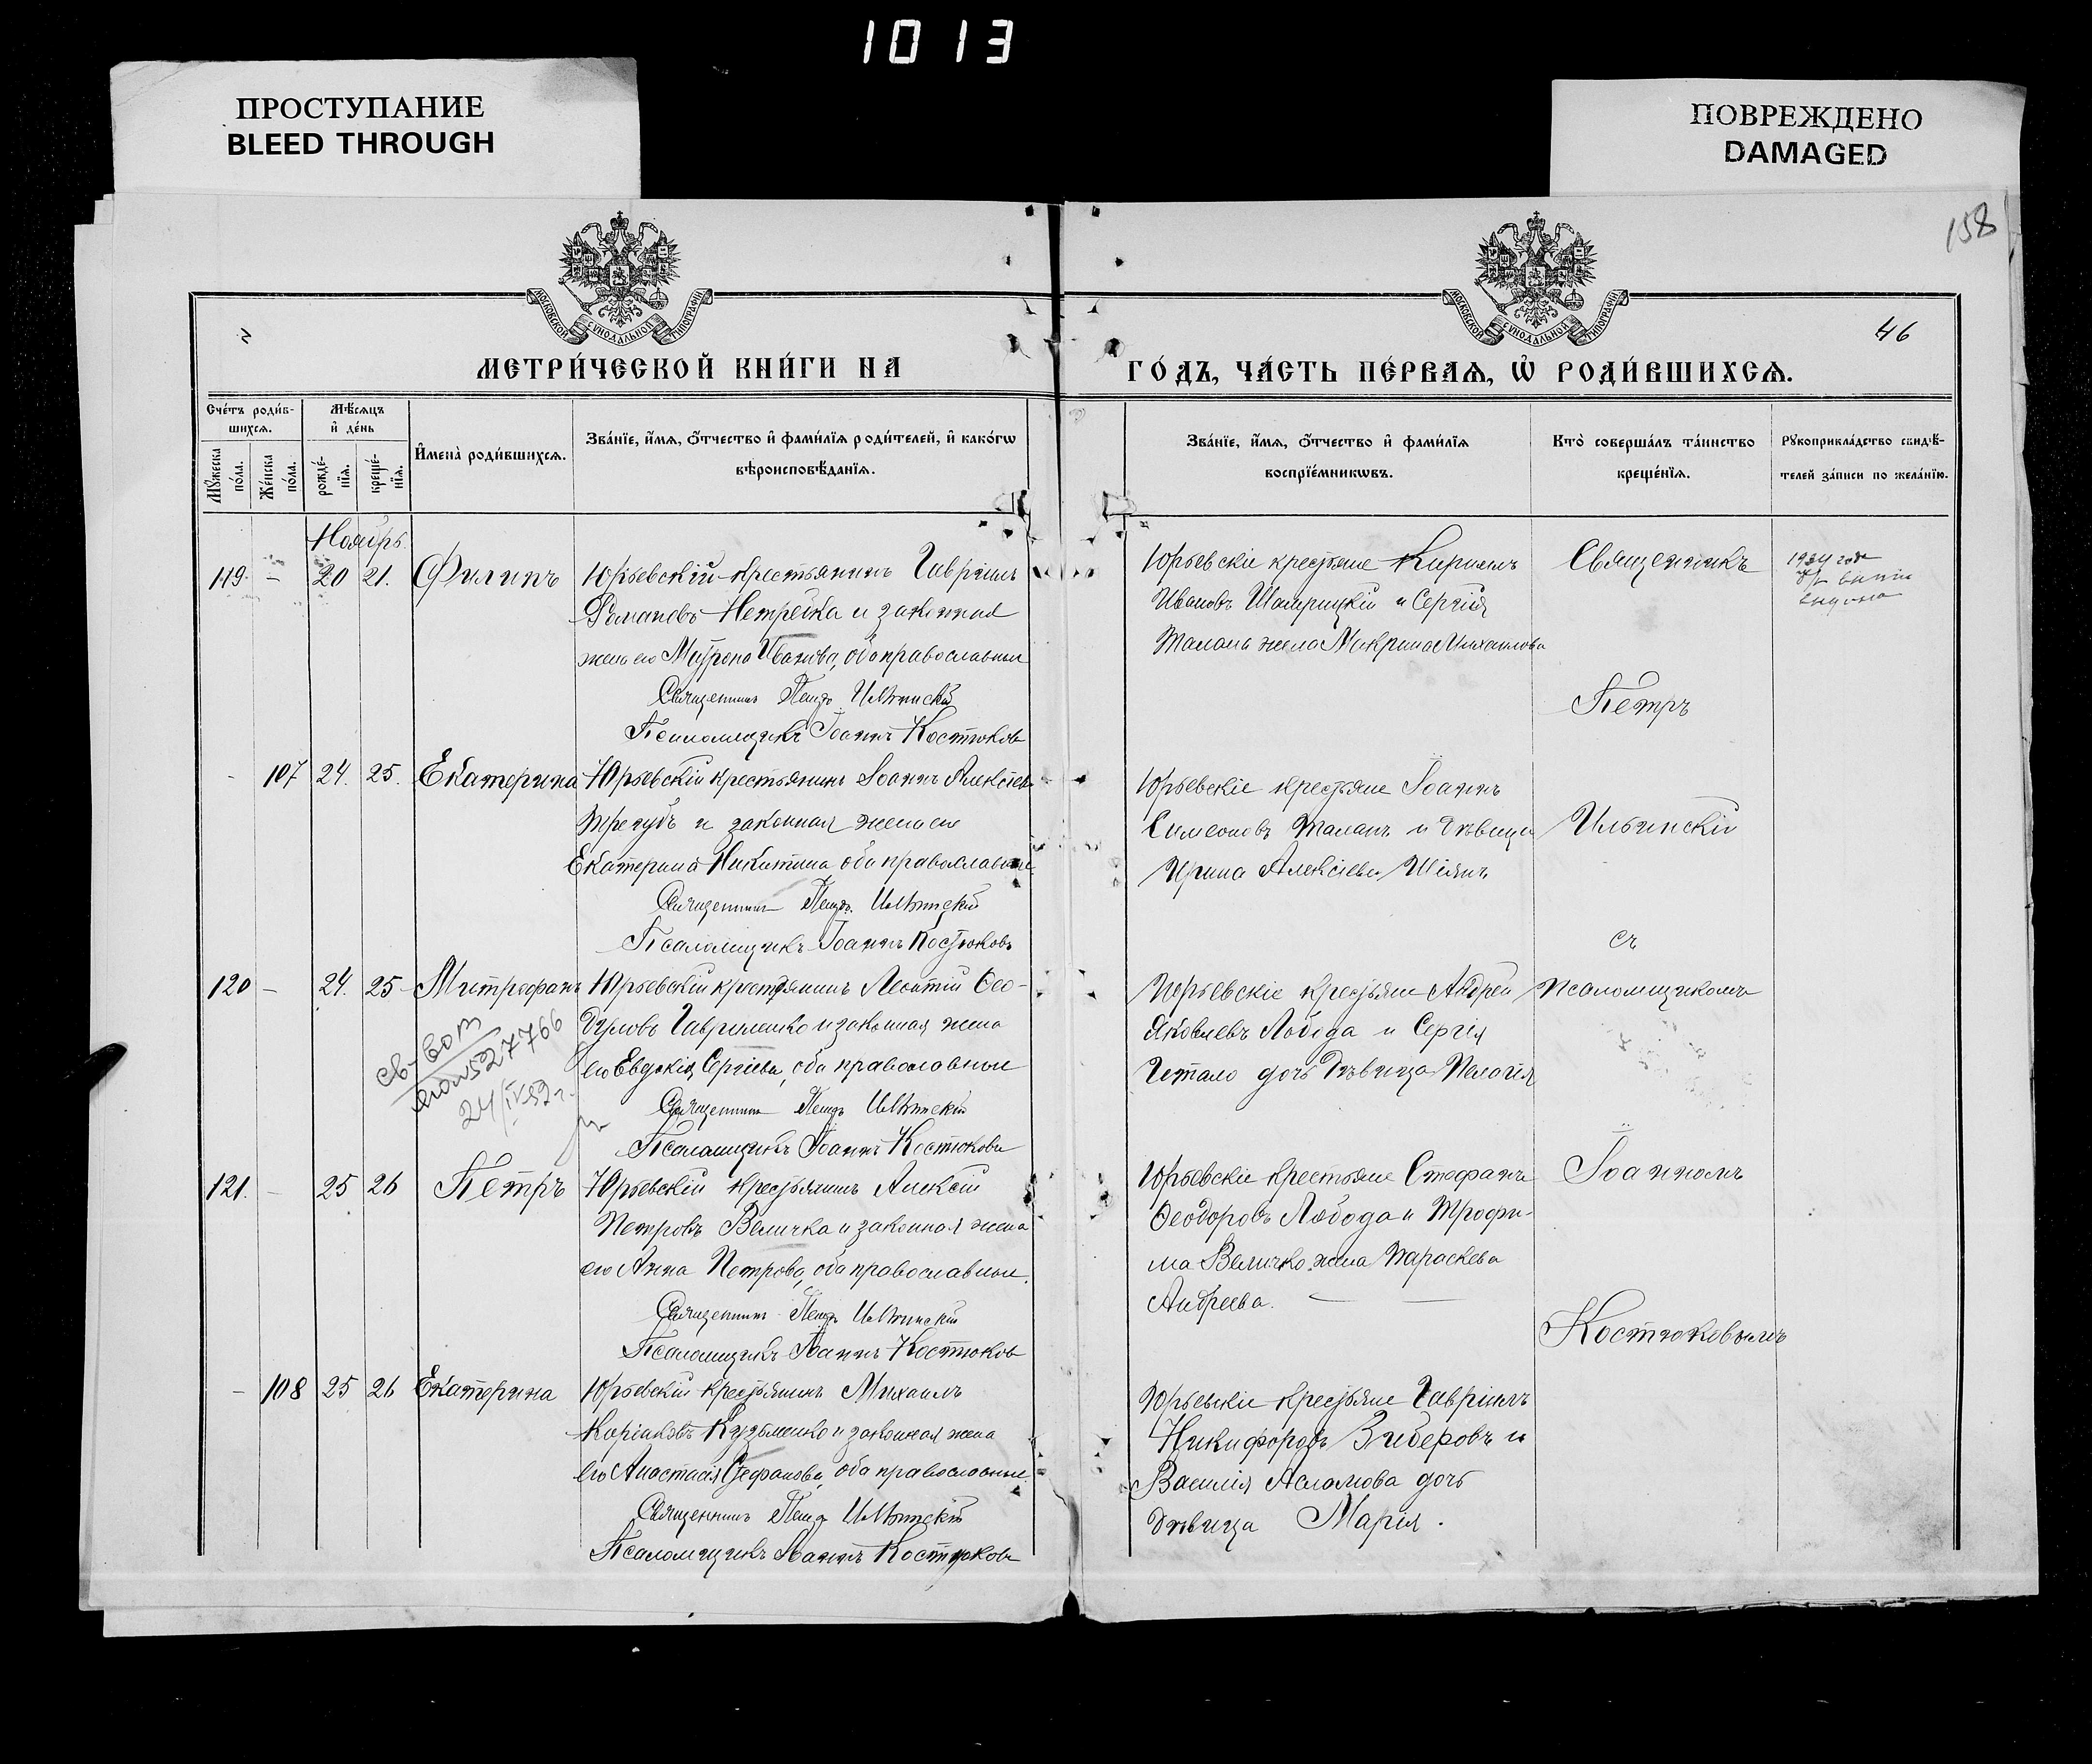 1013
ПРОСТУПАНИЕ
BLEED THROUGH
ПОВРЕЖДЕНО
DAMAGED
158
МОСКОВСКОЙ СѴНОДАЛЬНОЙ ТИПОГРАФІИ
МОСКОВСКОЙ СѴНОДАЛЬНОЙ ТИПОГРАФІИ
46
МЕТРИ́ЧЕСКОЙ КНИ́ГИ НА
ГО́ДЪ, ЧА́СТЬ ПЕ́РВАѦ, Ѡ҆ РОДИ́ВШИХСѦ.
Сче́тъ роди́в-
шихсѧ.
Мꙋ́жеска по́ла.
Же́нска по́ла.
Мѣ́сѧцъ
и҆ де́нь
рожде́-
нїѧ.
креще́-
нїѧ.
И҆мена̀ роди́вшихсѧ.
Зва́нїе, и҆́мѧ, ѻ҆́тчество и҆ фами́лїѧ роди́телей, и҆ како́гѡ
вѣроисповѣ́данїѧ.
Зва́нїе, и҆́мѧ, ѻ҆́тчество и҆ фами́лїѧ
воспрїе́мникѡвъ.
Кто̀ соверша́лъ та́инство
креще́нїѧ.
Рꙋкоприкла́дство свидѣ́-
телей за́писи по жела́нїю.
Ноябрь.
119. – 20 21. Филипъ Юрьевскій крестьянинъ Гавріилъ
Романовъ Нетребка и законная
жена его Матрона Иванова, оба православные
Священникъ Петръ Ильинскій
Псаломщикъ Іоаннъ Костюковъ
Юрьевскіе крестьяне Кириллъ
Ивановъ и Сергія
Талана жена Макрина Михаилова
Священникъ
Петръ
1934 года
– 107 24. 25. Екатерина Юрьевскій крестьянинъ Іоаннъ Алексіевъ
Трегубъ и законная жена его
Екатерина Никитина оба православные
Священникъ Петръ Ильинскій
Псаломщикъ Іоаннъ Костюковъ
Юрьевскіе крестьяне Іоаннъ
Симеоновъ Таланъ и дѣвица
Ирина Алексіева Шіянъ
Ильинскій
съ
120 – 24. 25 Митрофанъ Юрьевскій крестьянинъ Леонтій Ѳео-
дуловъ Гавриленко и законная жена
его Евдокія Сергіева, оба православные
Священникъ Петръ Ильинскій
Псаломщикъ Іоаннъ Костюковъ
св-во
527766
24/IV52г.
Юрьевскіе крестьяне Андрей
Яковлевъ Лобода и Сергія
дочь дѣвица Пелагія
псаломщикомъ
121. – 25 26 Петръ Юрьевскій крестьянинъ Алексій
Петровъ Величка и законная жена
его Анна Петрова, оба православные.
Священникъ Петръ Ильинскій
Псаломщикъ Іоаннъ Костюковъ
Юрьевскіе крестьяне Стефанъ
Ѳеодоровъ Лобода и Трофи-
ма Величко жена Параскева
Андреева.
Іоанномъ
Костюковымъ
– 108 25 26 Екатерина Юрьевскій крестьянинъ Михаилъ
Кузьменко и законная жена
его Анастасія Стефанова, оба православные
Священникъ Петръ Ильинскій
Псаломщикъ Іоаннъ Костюковъ
Юрьевскіе крестьяне Гавріилъ
Никифоровъ Зиберовъ и
Василія Асламова дочь
дѣвица Марія.